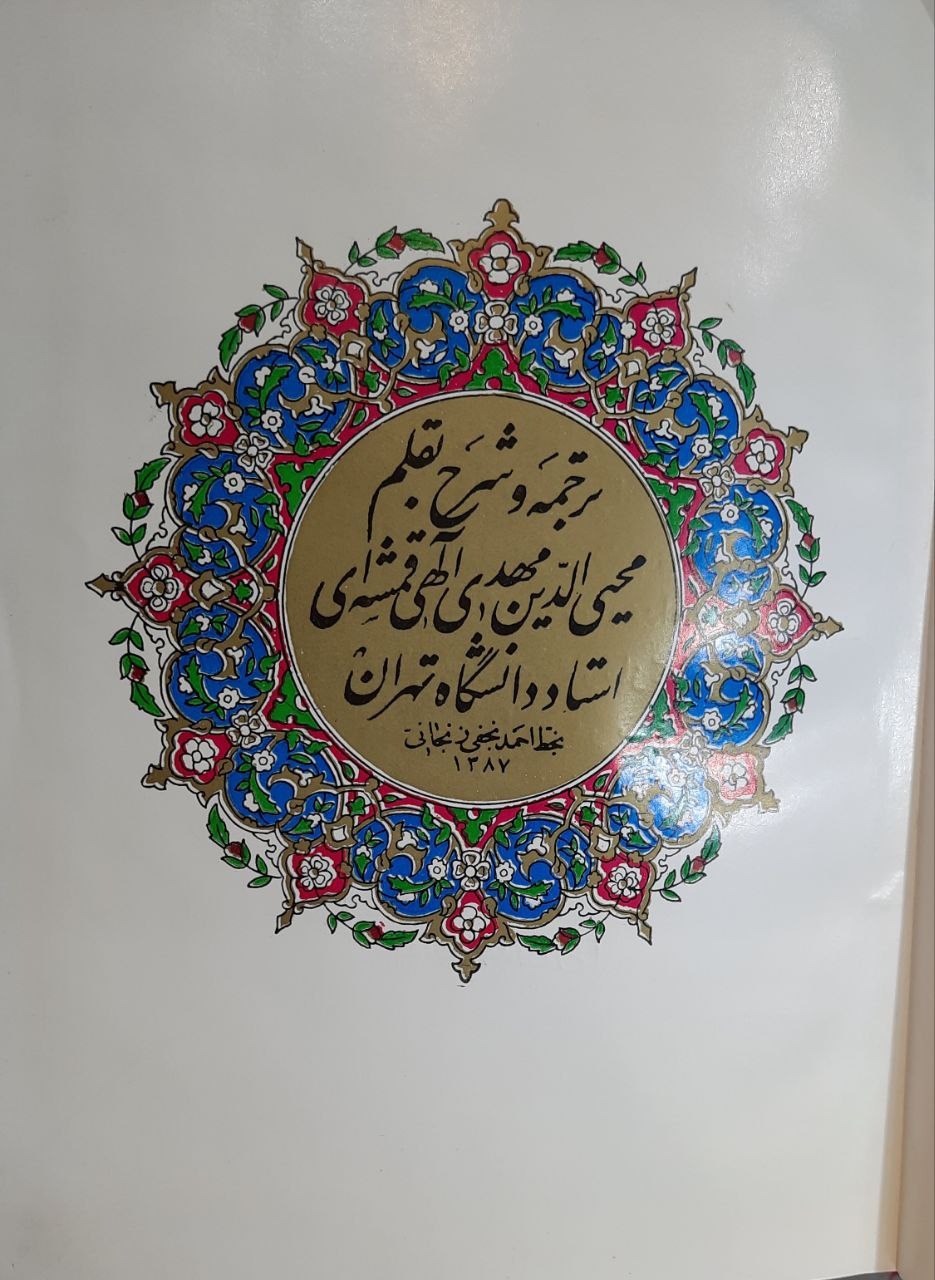 ترجمه و شرح بقلم
محیی الدین مهدی الهی قمشه‌ای
استاد دانشگاه تهران
بخط احمد نجفی زنجانی
۱۳۸۷